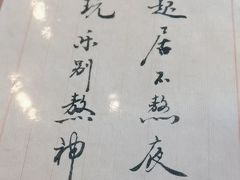 起居不熬夜
玩乐别熬神